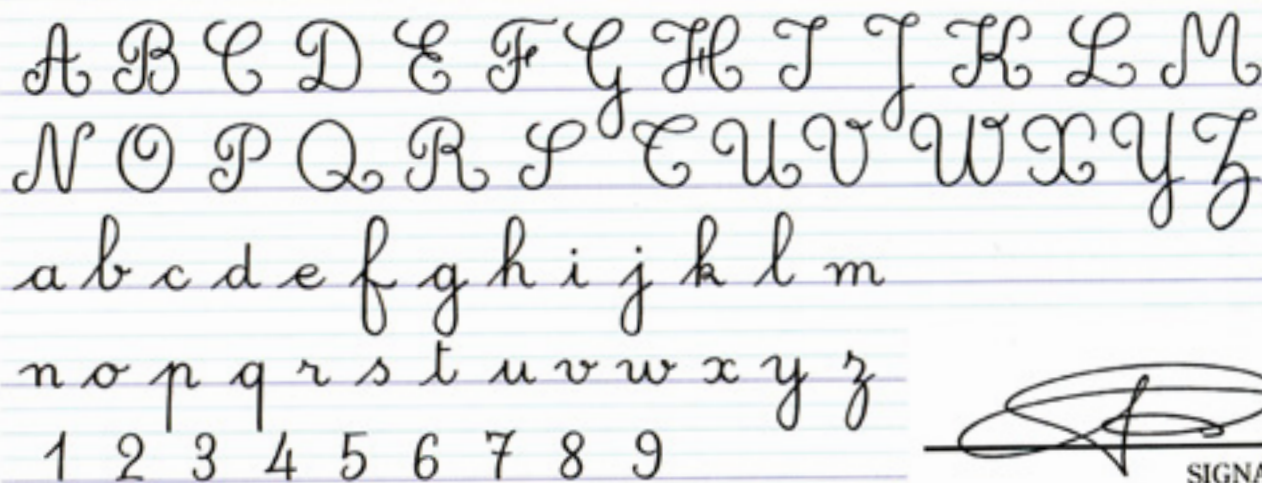 A B C D E F G H I J K L M
N O P Q R S T U V W X Y Z
a b c d e f g h i j k l m
n o p q r s t u v w x y z
1 2 3 4 5 6 7 8 9
SIGNA